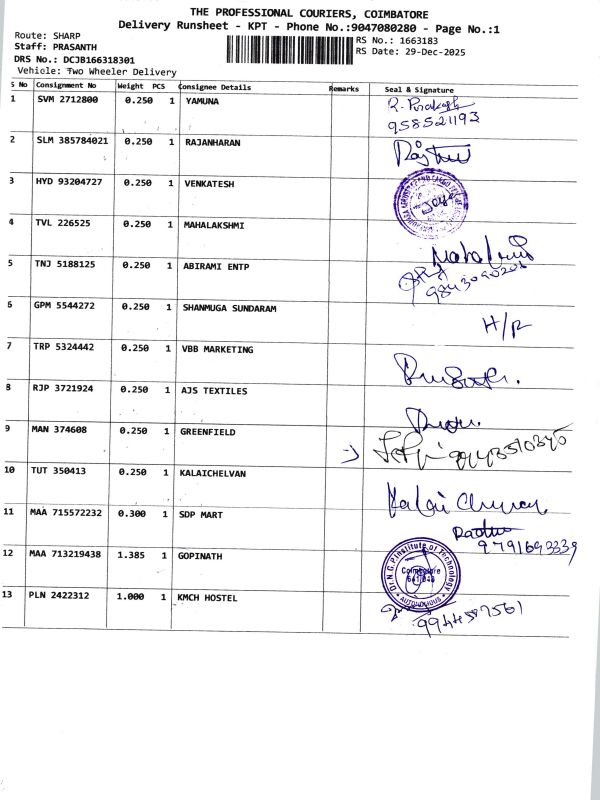 THE PROFESSIONAL COURIERS, COIMBATORE
Delivery Runsheet - KPT - Phone No.:9047080280 - Page No.:1
Route: SHARP
RS No.: 1663183
Staff: PRASANTH
RS Date: 29-Dec-2025
DRS No.: DCJB166318301
Vehicle: Two Wheeler Delivery
S No Consignment No Weight PCS Consignee Details Remarks Seal & Signature
1 SVM 2712800 0.250 1 YAMUNA
958521193
2 SLM 385784021 0.250 1 RAJANHARAN
3 HYD 93204727 0.250 1 VENKATESH
4 TVL 226525 0.250 1 MAHALAKSHMI
5 TNJ 5188125 0.250 1 ABIRAMI ENTP
6 GPM 5544272 0.250 1 SHANMUGA SUNDARAM
H/R
7 TRP 5324442 0.250 1 VBB MARKETING
8 RJP 3721924 0.250 1 AJS TEXTILES
9 MAN 374608 0.250 1 GREENFIELD
10 TUT 350413 0.250 1 KALAICHELVAN
11 MAA 715572232 0.300 1 SDP MART
9791693339
12 MAA 713219438 1.385 1 GOPINATH
Dr. N.G.P. Institute of Technology
Coimbatore
641 048
AUTONOMOUS
13 PLN 2422312 1.000 1 KMCH HOSTEL
9944587561